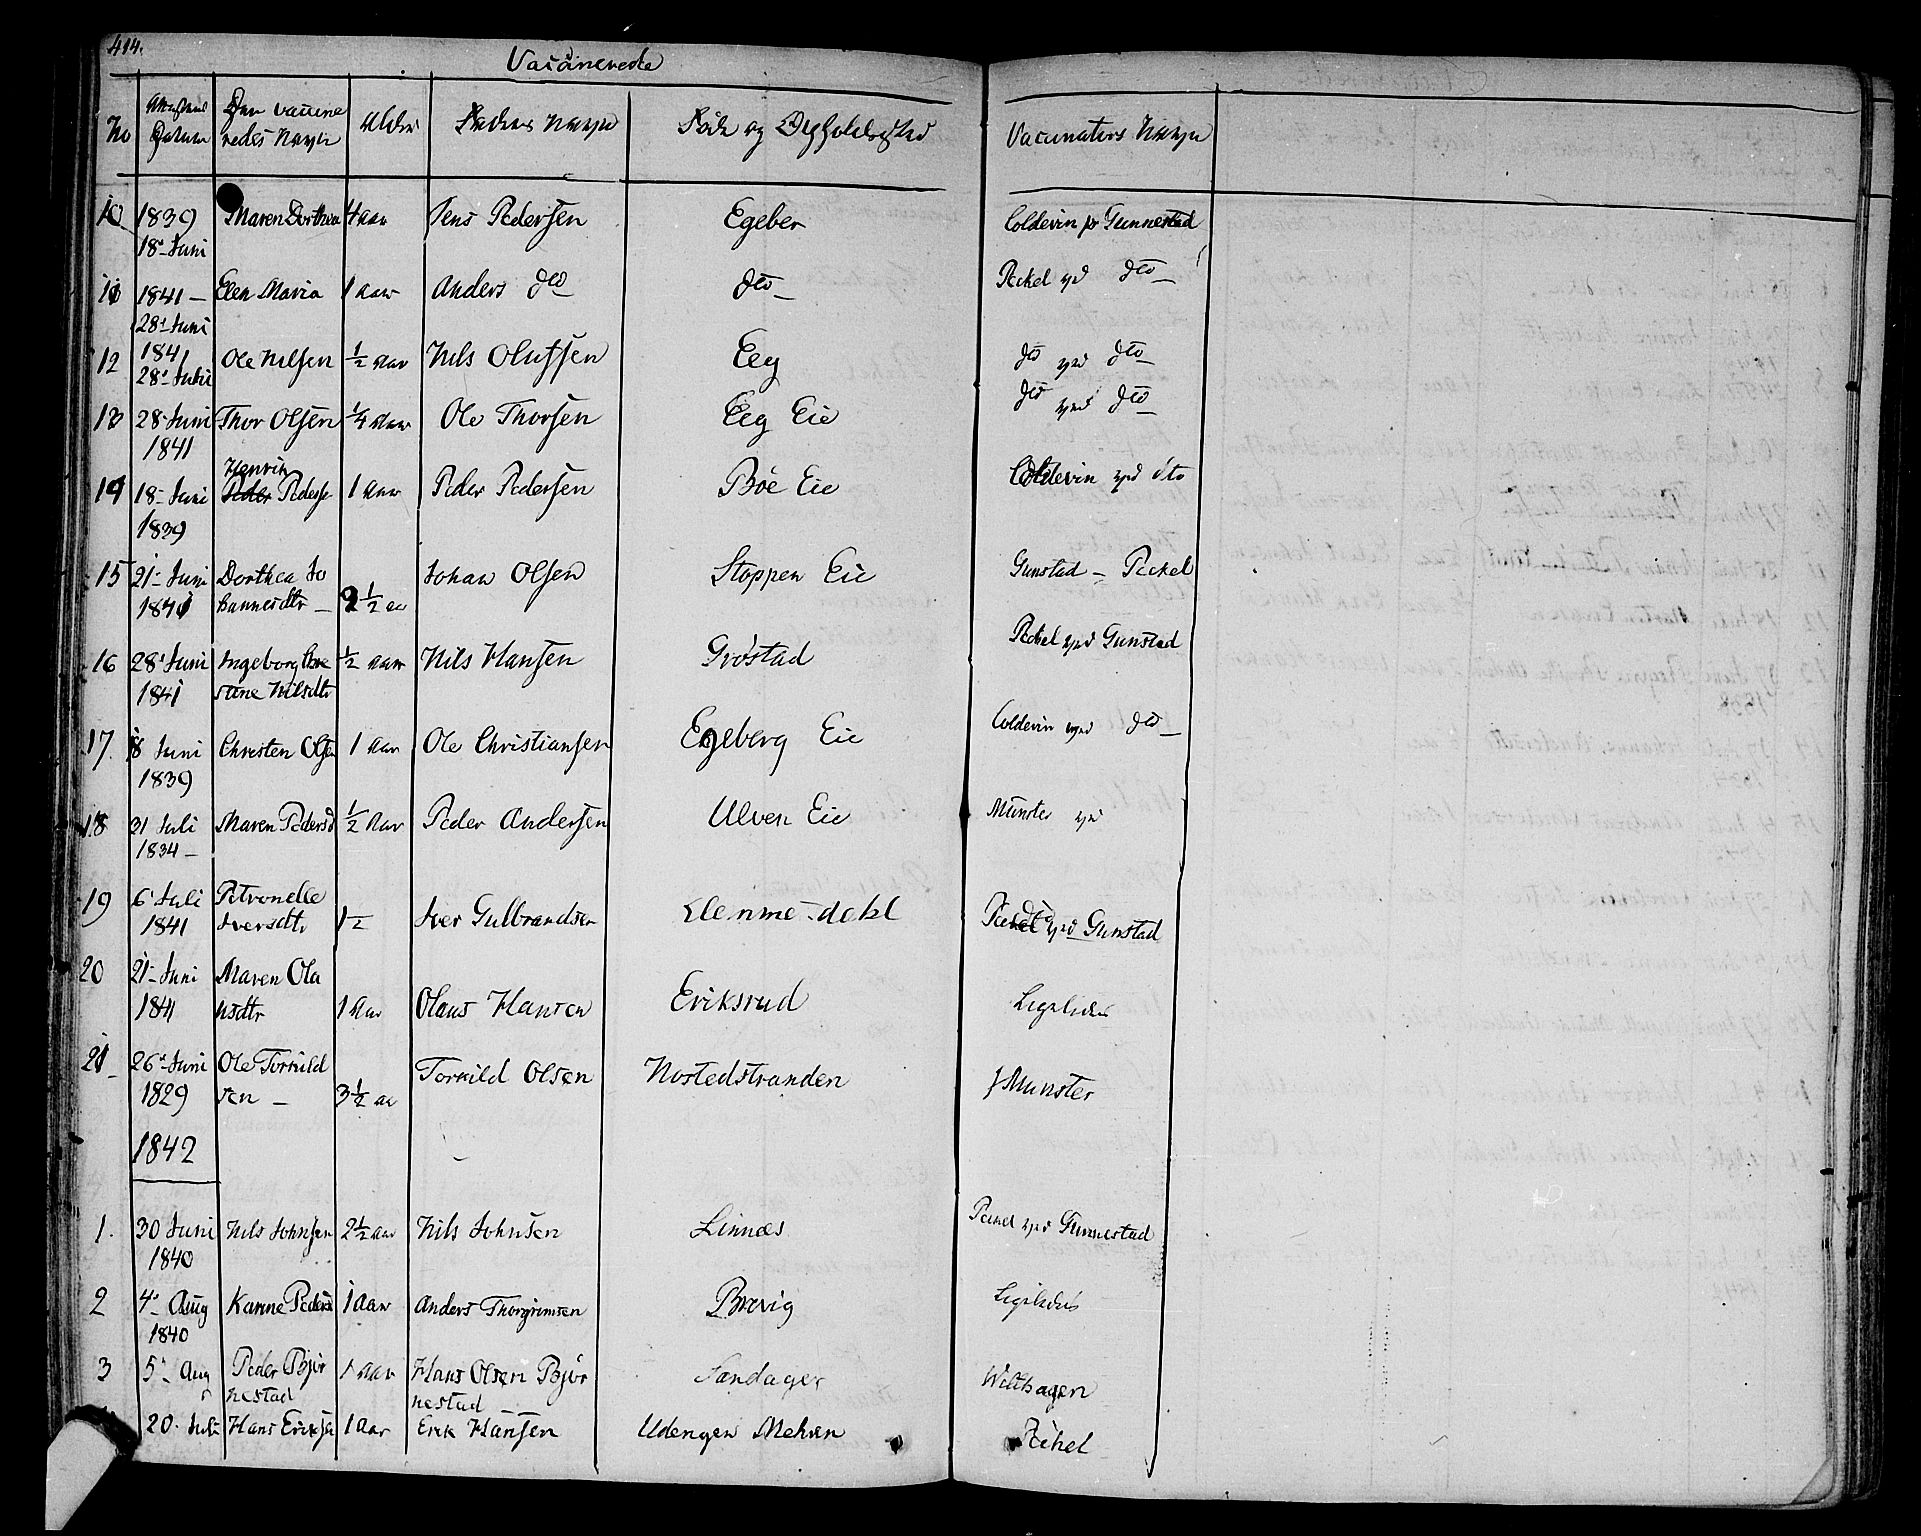 414.
Vaccinerede
No | Attestens Datum | Den vaccineredes Navn | Alder | Faders Navn | Føde og Opholdssted | Vaccinators Navn
10 | 1839 18d Juni | Maren Dorthea | 4 aar | Jens Pedersen | Egeber | Coldevin p Gunnestad
11 | 1841 – 28d Juni | Elen Maria | 1 aar | Anders dto | dto – | Peckel ved dto –
12 | 1841 28d Juni | Ole Nilsen | ½ aar | Nils Olufsen | Eeg | dto ved dto –
13 | 28 Juni 1841 | Thor Olsen | ¼ aar | Ole Thorsen | Eeg Eie | dto ved dto –
14 | 18 – Juni 1839 | Henrik Peder Pederse | 1 aar | Peder Pedersen | Böe Eie | Coldevin ved dto
15 | 21 – Juni 1841 | Dorthea Johannesdtr – | 2½ aa | Johan Olsen | Stoppen Eie | Gunstad – Peckel
16 | 28d Juni 1841 | Ingeborg Chrestine Nilsdtr | ½ aar | Nils Hansen | Gröstad | Peckel ved Gunstad
17. | 18 Juni 1839 | Christen Olsen | 1 aar | Ole Christiansen | Egeberg Eie | Coldevin ved dto –
18 | 21 Juli 1834 – | Maren Pedersd | ½ aar | Peder Andersen | Ulven Eie | Münster ved
19 | 6d Juli 1841 | Petronelle Iversdtr | 1½ | Iver Gulbrandsen | | Peckel ved Gunstad
20 | 21 – Juni 1841 | Maren Olausdtr | 1 Aar | Olaus Hansen | Eriksrud | Ligeledes
21 – | 26d Juni 1829 | Ole Torkildsen – | 3½ aa | Torkild Olsen | Nostedstranden | f Munster
1842
1. | 30 Juni 1840 | Nils Johnsen | 2½ aar | Nils Johnsen | Linnæs | Peckel ved Gunnestad
2 | 4d Aug 1840 | Karine Peders | 1 Aar | Anders Thorgrimsen | Brevig | Ligeledes
3 | 5 – Aug | Peder Björnestad | 1 Aar | Hans Olsen Björnestad – | Sandager | Wilthagen
20. Juli | Hans Eriksen | 1 Aar | Erik Hansen | Udengen Mehren | Pekel